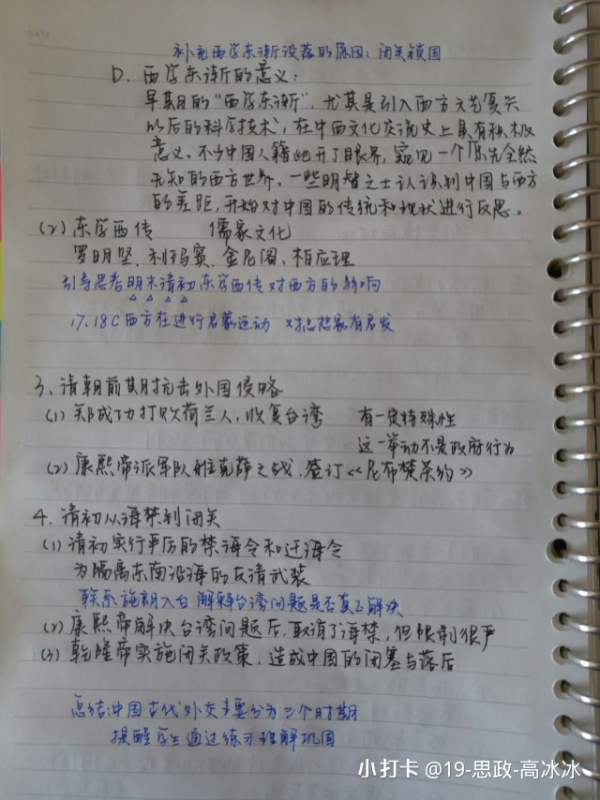 补充西学东渐没落的原因：闭关锁国
D. 西学东渐的意义：
早期的“西学东渐”，尤其是引入西方文艺复兴
以后的科学技术，在中西文化交流史上具有积极
意义。不少中国人籍此开了眼界，窥见一个原先全然
无知的西方世界。一些明智之士认识到中国与西方
的差距，开始对中国的传统和现状进行反思。
(2) 东学西传 儒家文化
罗明坚、利玛窦、金尼阁、柏应理
引导思考明末清初东学西传对西方的影响
17、18C西方在进行启蒙运动 对思想家有启发
3. 清朝前期抗击外国侵略
(1) 郑成功打败荷兰人，收复台湾 有一定特殊性
这一举动不是政府行为
(2) 康熙帝派军队雅克萨之战、签订《尼布楚条约》
4. 清初从海禁到闭关
(1) 清初实行严厉的禁海令和迁海令
为隔离东南沿海的反清武装
联系施琅入台 解释台湾问题是否真正解决
(2) 康熙帝解决台湾问题后，取消了海禁，但限制很严
(3) 乾隆帝实施闭关政策，造成中国的闭塞与落后
总结：中国古代外交主要分为三个时期
提醒学生通过练习理解巩固
小打卡 @19-思政-高冰冰